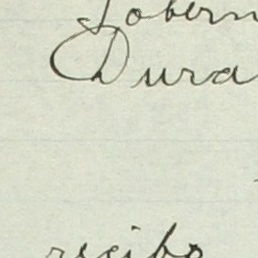 Gobern
Dura
recibo